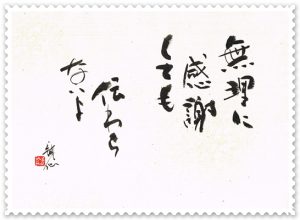 無理に
感謝
しても
伝わら
ないよ